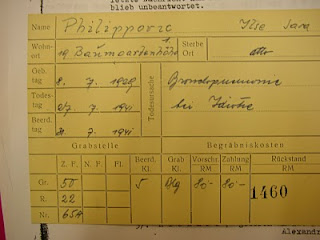 blieb unbeantwortet.
Name Ilse Sara
Wohn- ort 19 Baumgartenhöhe Sterbe Ort otto
Geb. tag 7. 1929 Todesursache Bronchopneumonie
Todes- tag 7. 1941 bei Idiotie
Beerd. tag 7. 1941
Grabstelle Begräbniskosten
Z. P. N. P. Fl. Beerd. Kl. Grab Kl. Vorschr. RM Zahlung RM Rückstand RM
Gr. 50 5 80.- 80.- 1460
R. 22
Nr.